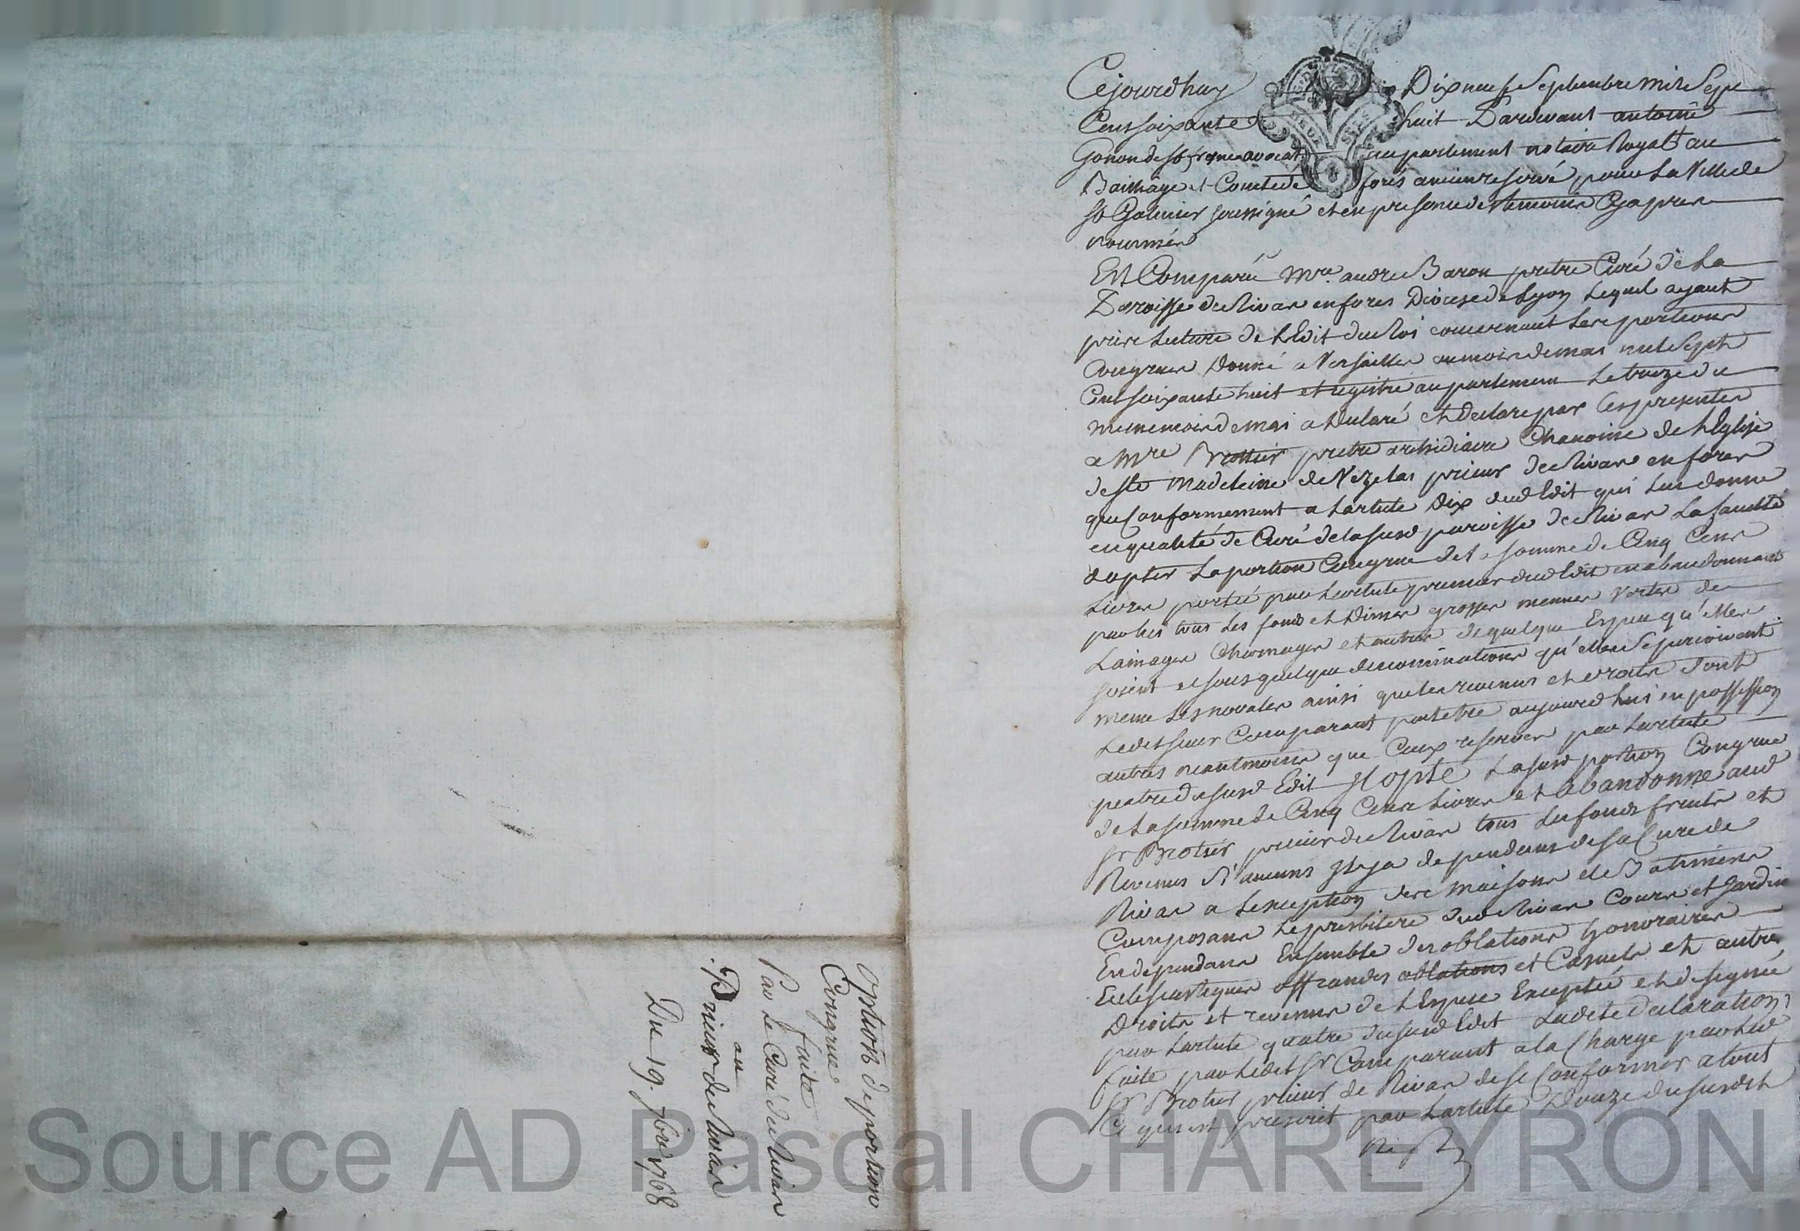 Cejourdhuy Dixneuf Septembre mil Sept
Cent soixante huit Pardevant antoine
Gonon de St fresne avocat au parlement notaire Royal au
Bailliage et Comté de forés ancien reservé pour La Ville de
St Galmier soussigné et en presence des temoins Cy apres
nommés
Est Comparu Mre. andre Baron pretre Curé de La
Paroisse de Rivas en fores Diocese de Lyon Lequel ayant
prise Lecture de L'Edit du Roi concernant Les portions
Congrues donné a Versailles au mois de mai mil Sept
Cent soixante huit et registré au parlement Le treize du
meme mois de mai a declaré et declare par Ces presentes
a Mre Brotier pretre Chanoine de L'Eglise
de Ste Madeleine de Vezelai prieur de Rivas en fores
que Conformement a Larticle dix dud Edit qui Lui donne
en qualité de Curé de lasusd paroisse de Rivas La faculté
dopter La portion Congrue de la somme de Cinq Cens
Livres portée par Larticle premier dud Edit en abandonnant
par lui tous Les fonds et dimes grosses menues vertes de
Lainages Charnages et autres de quelque Espece qu'elles
soient et sous quelque denominations qu'elles Se percoivent
meme Les novales ainsi que les revenus et droits dont
Ledit sieur Comparant peut etre aujourdhui en possession
autres neantmoins que Ceux reservés par Larticle
quatre du susd Edit Il opte Lasusd portion Congrue
de La somme de Cinq Cens Livres et abandonne aud
Sr Brotier, prieur de Rivas tous Les fonds fruits et
Revenus Si aucuns Il y a dependans de sa Cure de
Rivas a Lexception des maisons et Batimens
Composans Le presbitere dud Rivas Cours et Jardin
En dependans Ensemble des oblations honoraires
Eclesiastiques offrandes oblations et Casuels et autres
Droits et revenus de L'Espece Exceptée et designée
par Larticle quatre du susd Edit Ladite declaration
faite par Ledit Sr Comparant a la Charge par Led
Sr Brotier prieur de Rivas de se Conformer a tout
Ce qui est prescrit par Larticle Douze du susd Edit
option de portion
Congrue
faite
Par Le Curé de Rivas
au
Prieur de Rivas
Du 19. 7bre 1768
Source AD Pascal CHAREYRON